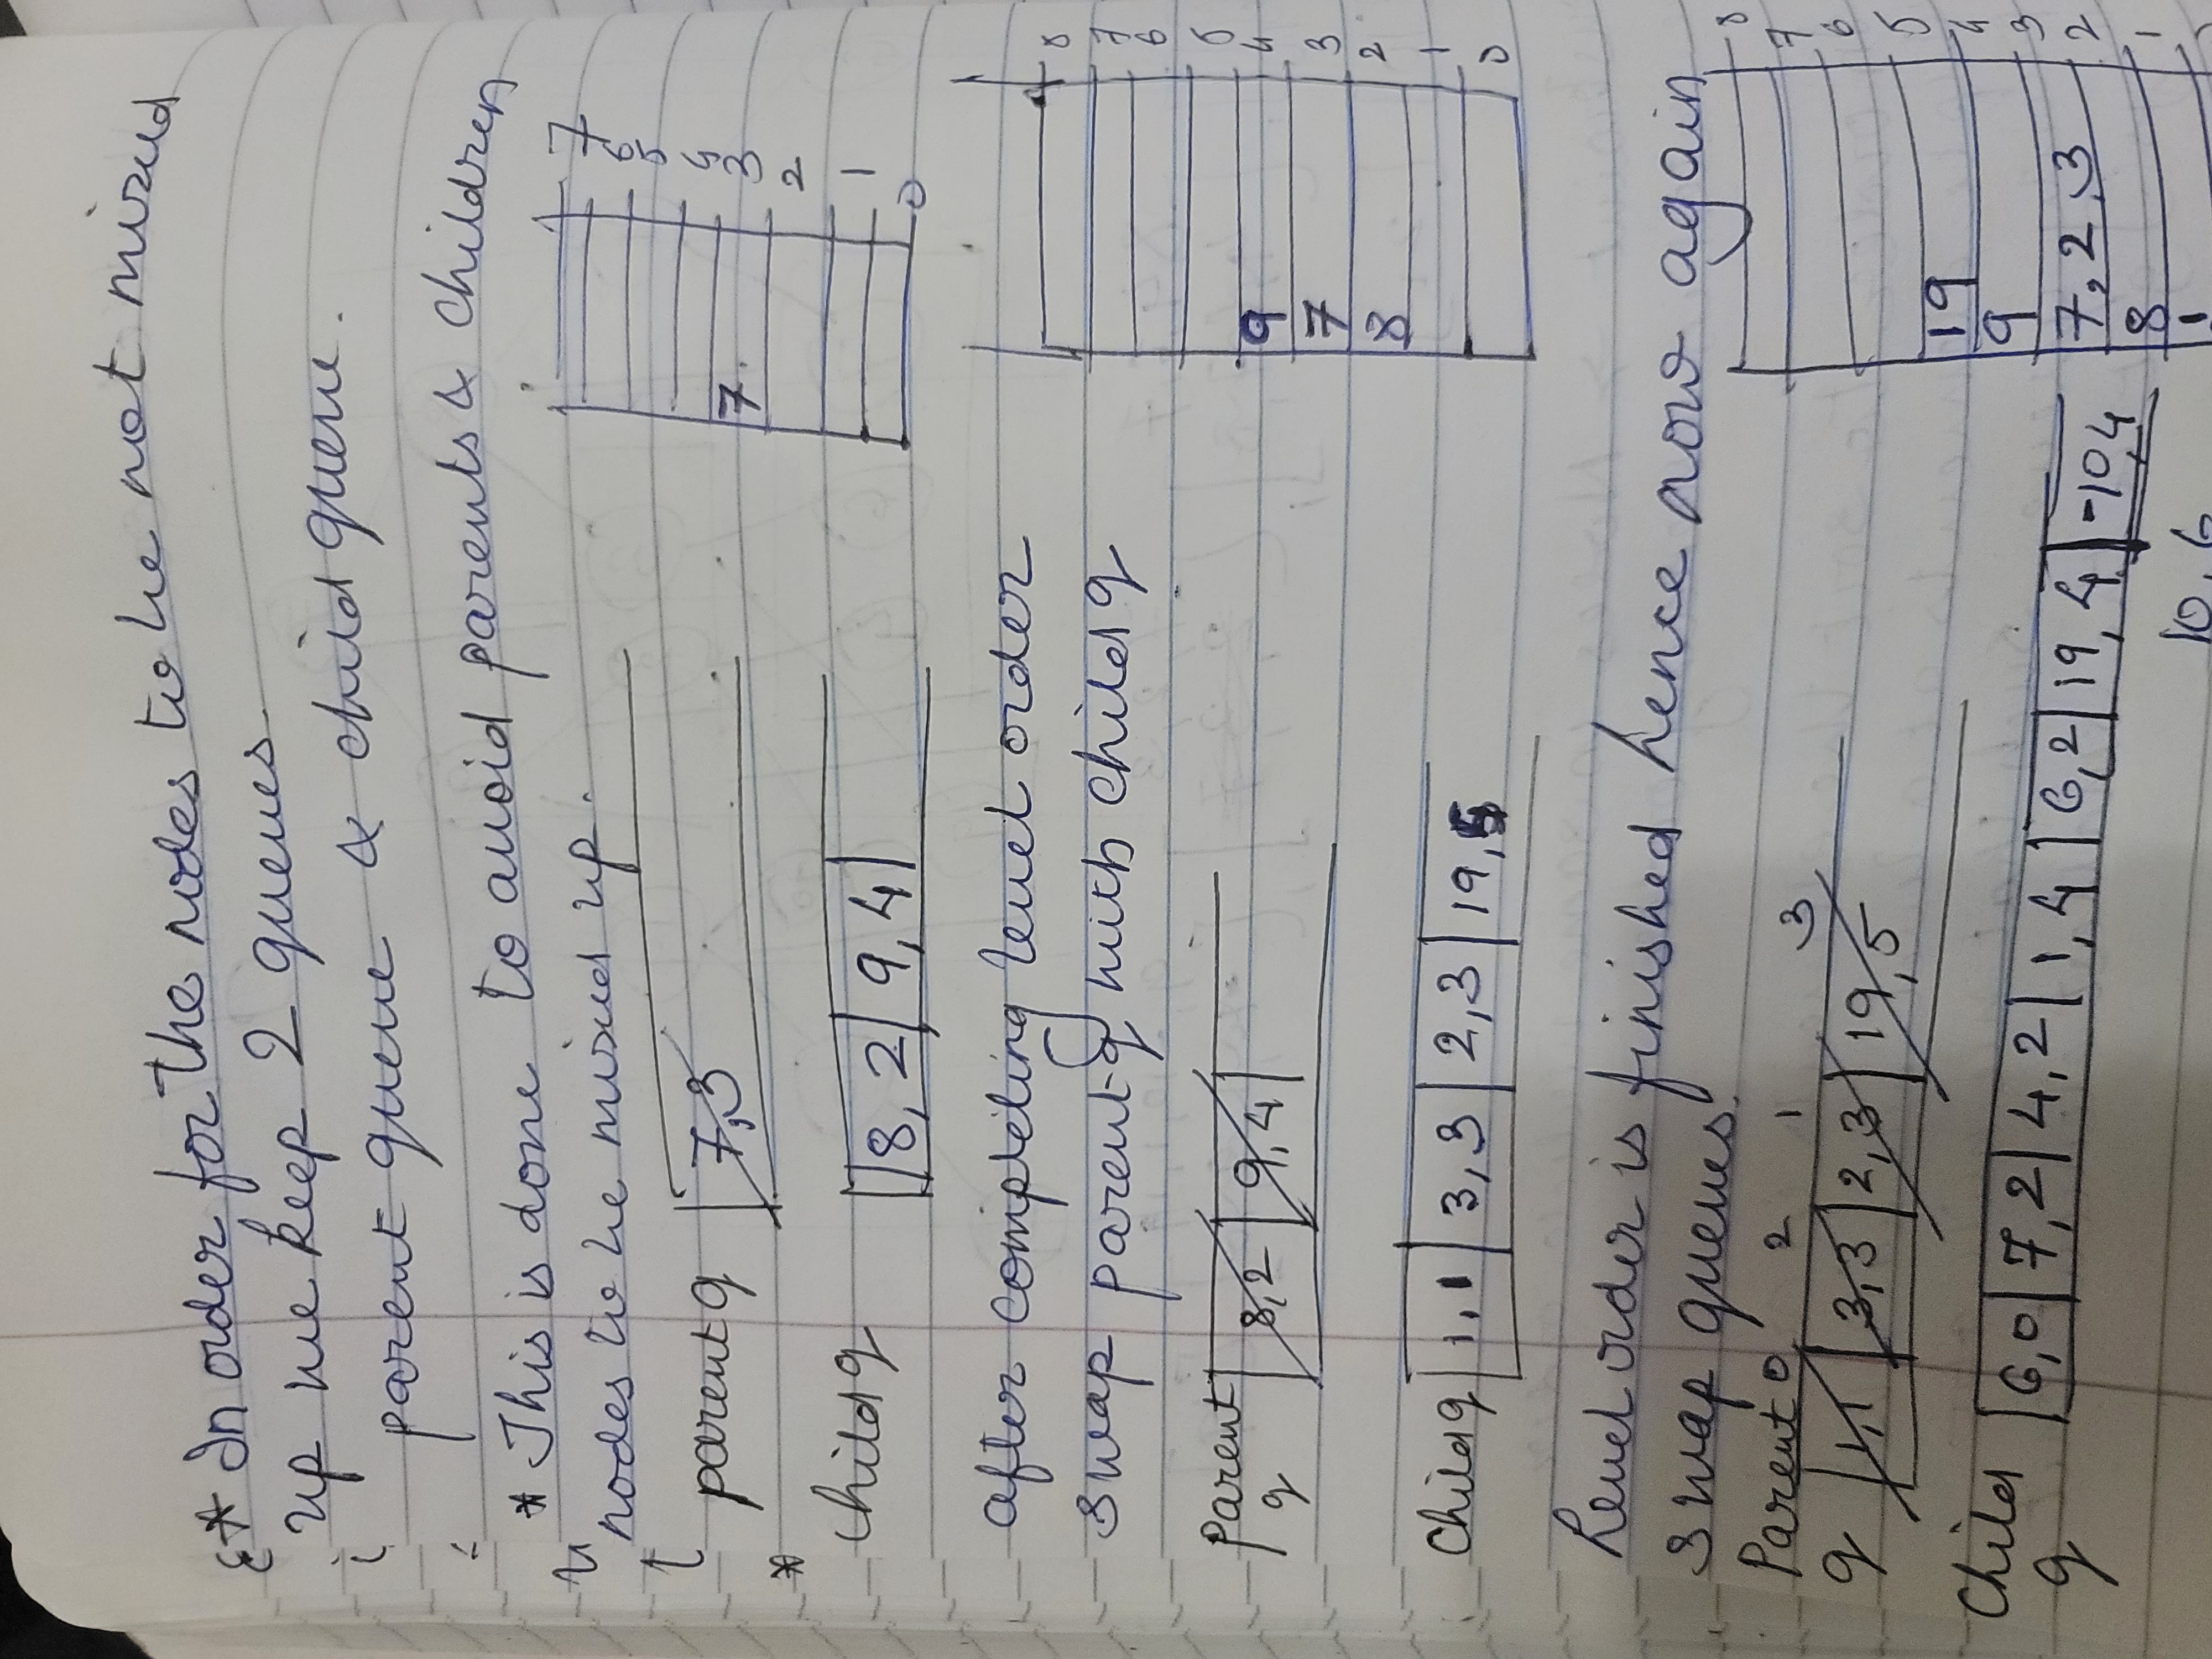 * In order for the nodes to be not mixed
up we keep 2 queues.
parent queue & child queue.
* This is done to avoid parents & children
nodes to be mixed up.
parent q 7,3
child q 8, 2 9, 4
7
6
5
4
7 3
2
1
0
After completing level order
swap parent-q with child q
parent
q 8,2 9,4
Child q 1,1 3,3 2,3 19,5
8
7
6
5
9 4
7 3
8 2
1
0
Level order is finished hence now again
swap queues.
Parent 0 2 1 3
q 1,1 3,3 2,3 19,5
Child
q 6,0 7,2 4,2 1,4 6,2 19,4 -10,4
10,6
8
7
6
5
19
4
9
3
7, 2, 3 2
8 1
1